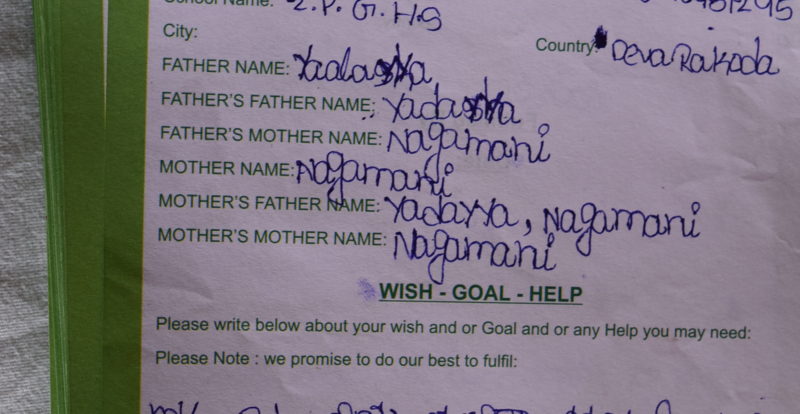 School Name: Z.P.G.H.S
City:
Country DevaRakoda
FATHER NAME: Yadayya
FATHER'S FATHER NAME: Yadayya
FATHER'S MOTHER NAME: Nagamani
MOTHER NAME: Nagamani
MOTHER'S FATHER NAME: Yadayya, Nagamani
MOTHER'S MOTHER NAME: Nagamani
WISH - GOAL - HELP
Please write below about your wish and or Goal and or any Help you may need:
Please Note : we promise to do our best to fulfil: